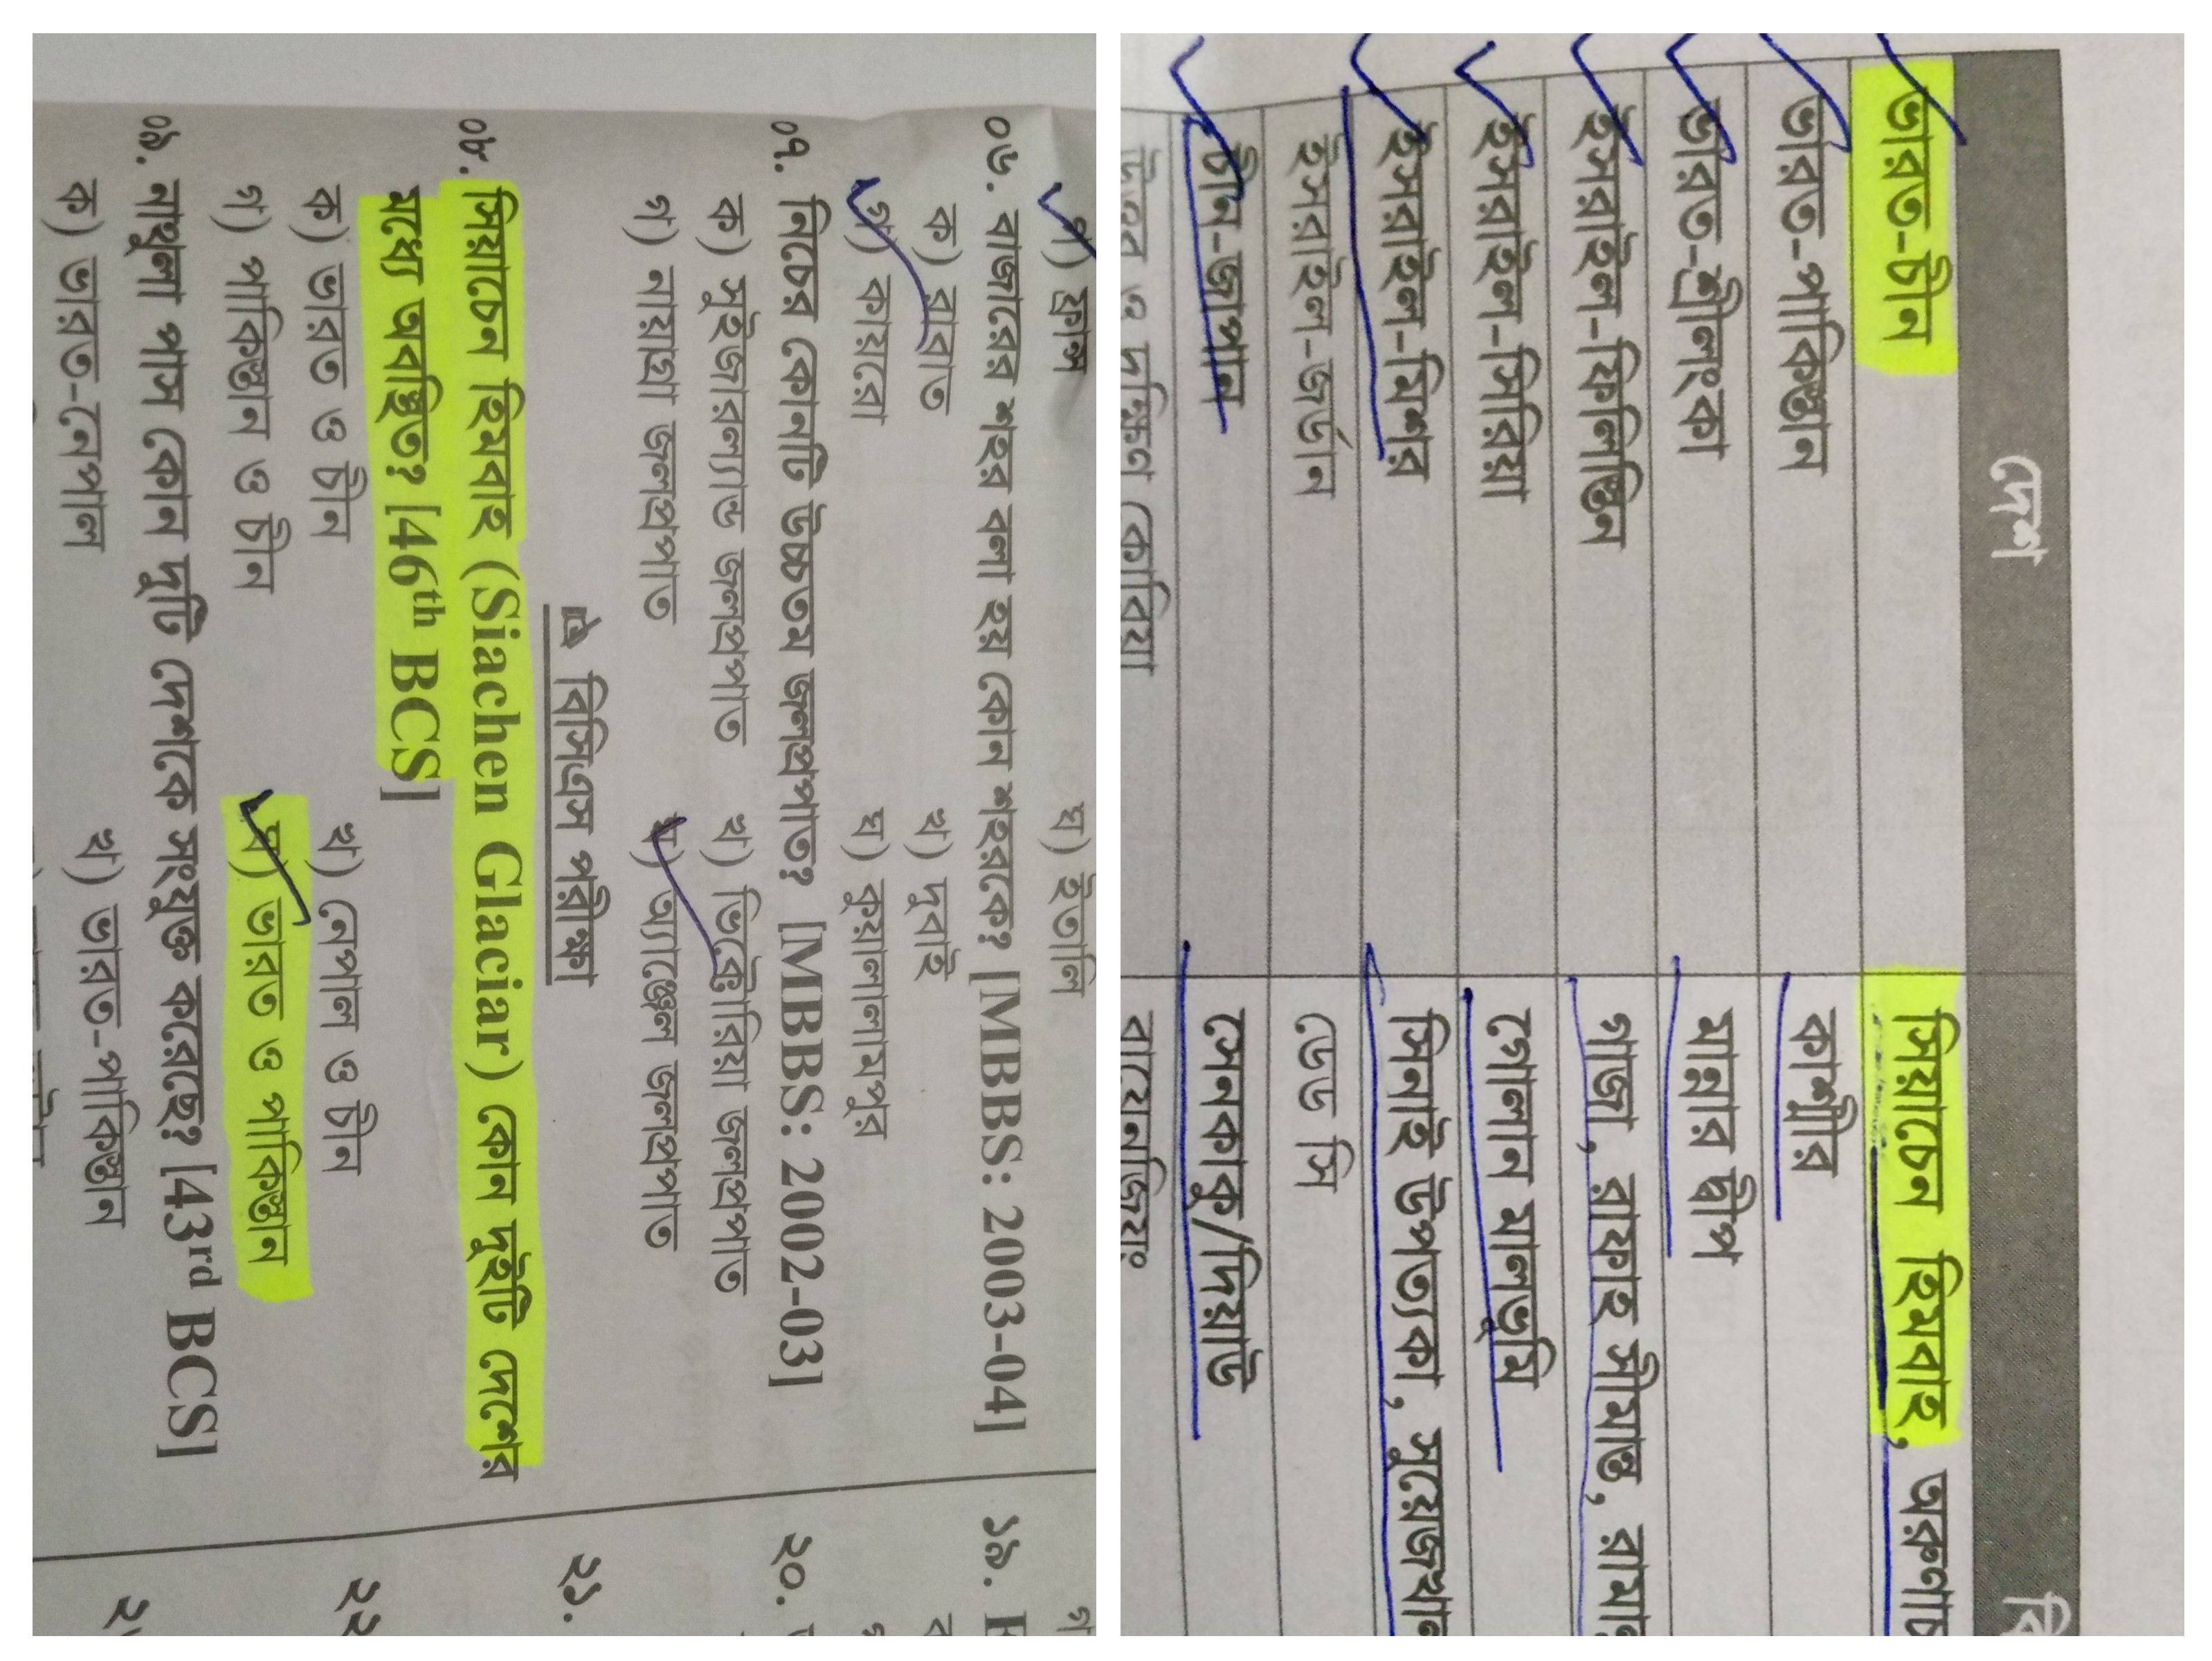 গ) ফ্রান্স ঘ) ইতালি
০৬. বাজারের শহর বলা হয় কোন শহরকে? [MBBS: 2003-04]
ক) রাবাত খ) দুবাই
গ) কায়রো ঘ) কুয়ালালামপুর
০৭. নিচের কোনটি উচ্চতম জলপ্রপাত? [MBBS: 2002-03]
ক) সুইজারল্যান্ড জলপ্রপাত খ) ভিক্টোরিয়া জলপ্রপাত
গ) নায়াগ্রা জলপ্রপাত ঘ) অ্যাঞ্জেল জলপ্রপাত
বিসিএস পরীক্ষা
০৮. সিয়াচেন হিমবাহ (Siachen Glaciar) কোন দুইটি দেশের
মধ্যে অবস্থিত? [46th BCS]
ক) ভারত ও চীন খ) নেপাল ও চীন
গ) পাকিস্তান ও চীন ঘ) ভারত ও পাকিস্তান
০৯. নাথুলা পাস কোন দুটি দেশকে সংযুক্ত করেছে? [43rd BCS]
ক) ভারত-নেপাল খ) ভারত-পাকিস্তান
১৯.
২০.
২১.
২২
দেশ বি
ভারত-চীন সিয়াচেন হিমবাহ, অরুণাচ
ভারত-পাকিস্তান কাশ্মীর
ভারত-শ্রীলংকা মান্নার দ্বীপ
ইসরাইল-ফিলিস্তিন গাজা, রাফাহ সীমান্ত, রামা
ইসরাইল-সিরিয়া গোলান মালভূমি
ইসরাইল-মিশর সিনাই উপত্যকা, সুয়েজখা
ইসরাইল-জর্ডান ডেড সি
চীন-জাপান সেনকাকু/দিয়াউ
উত্তর ও দক্ষিণ কোরিয়া বায়েনজিয়ং